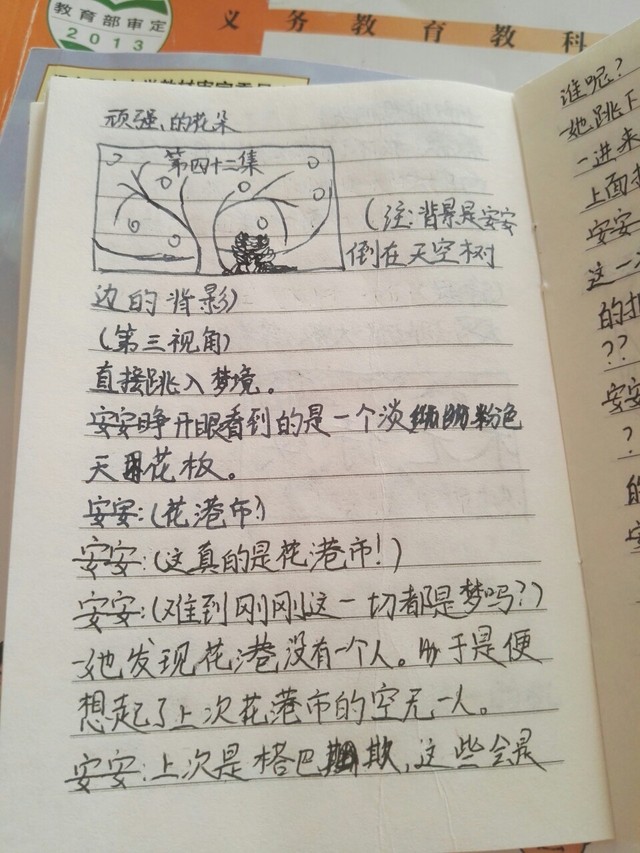 教育部审定
2013
义务教育教科
顽强的花朵
第四十二集
(注:背景是安安
倒在天空树
边的背影)
(第三视角)
直接跳入梦境。
安安睁开眼看到的是一个淡粉色
天花板。
安安:(花港市?)
安安:(这真的是花港市!)
安安:(难到刚刚这一切都是梦吗?)
她发现花港没有一个人。于是便
想起了上次花港市的空无一人。
安安:上次是格巴欺,这些会录
谁呢?
她跳下
一进来
上面
安安
这一
的
??
安安
?
的
安